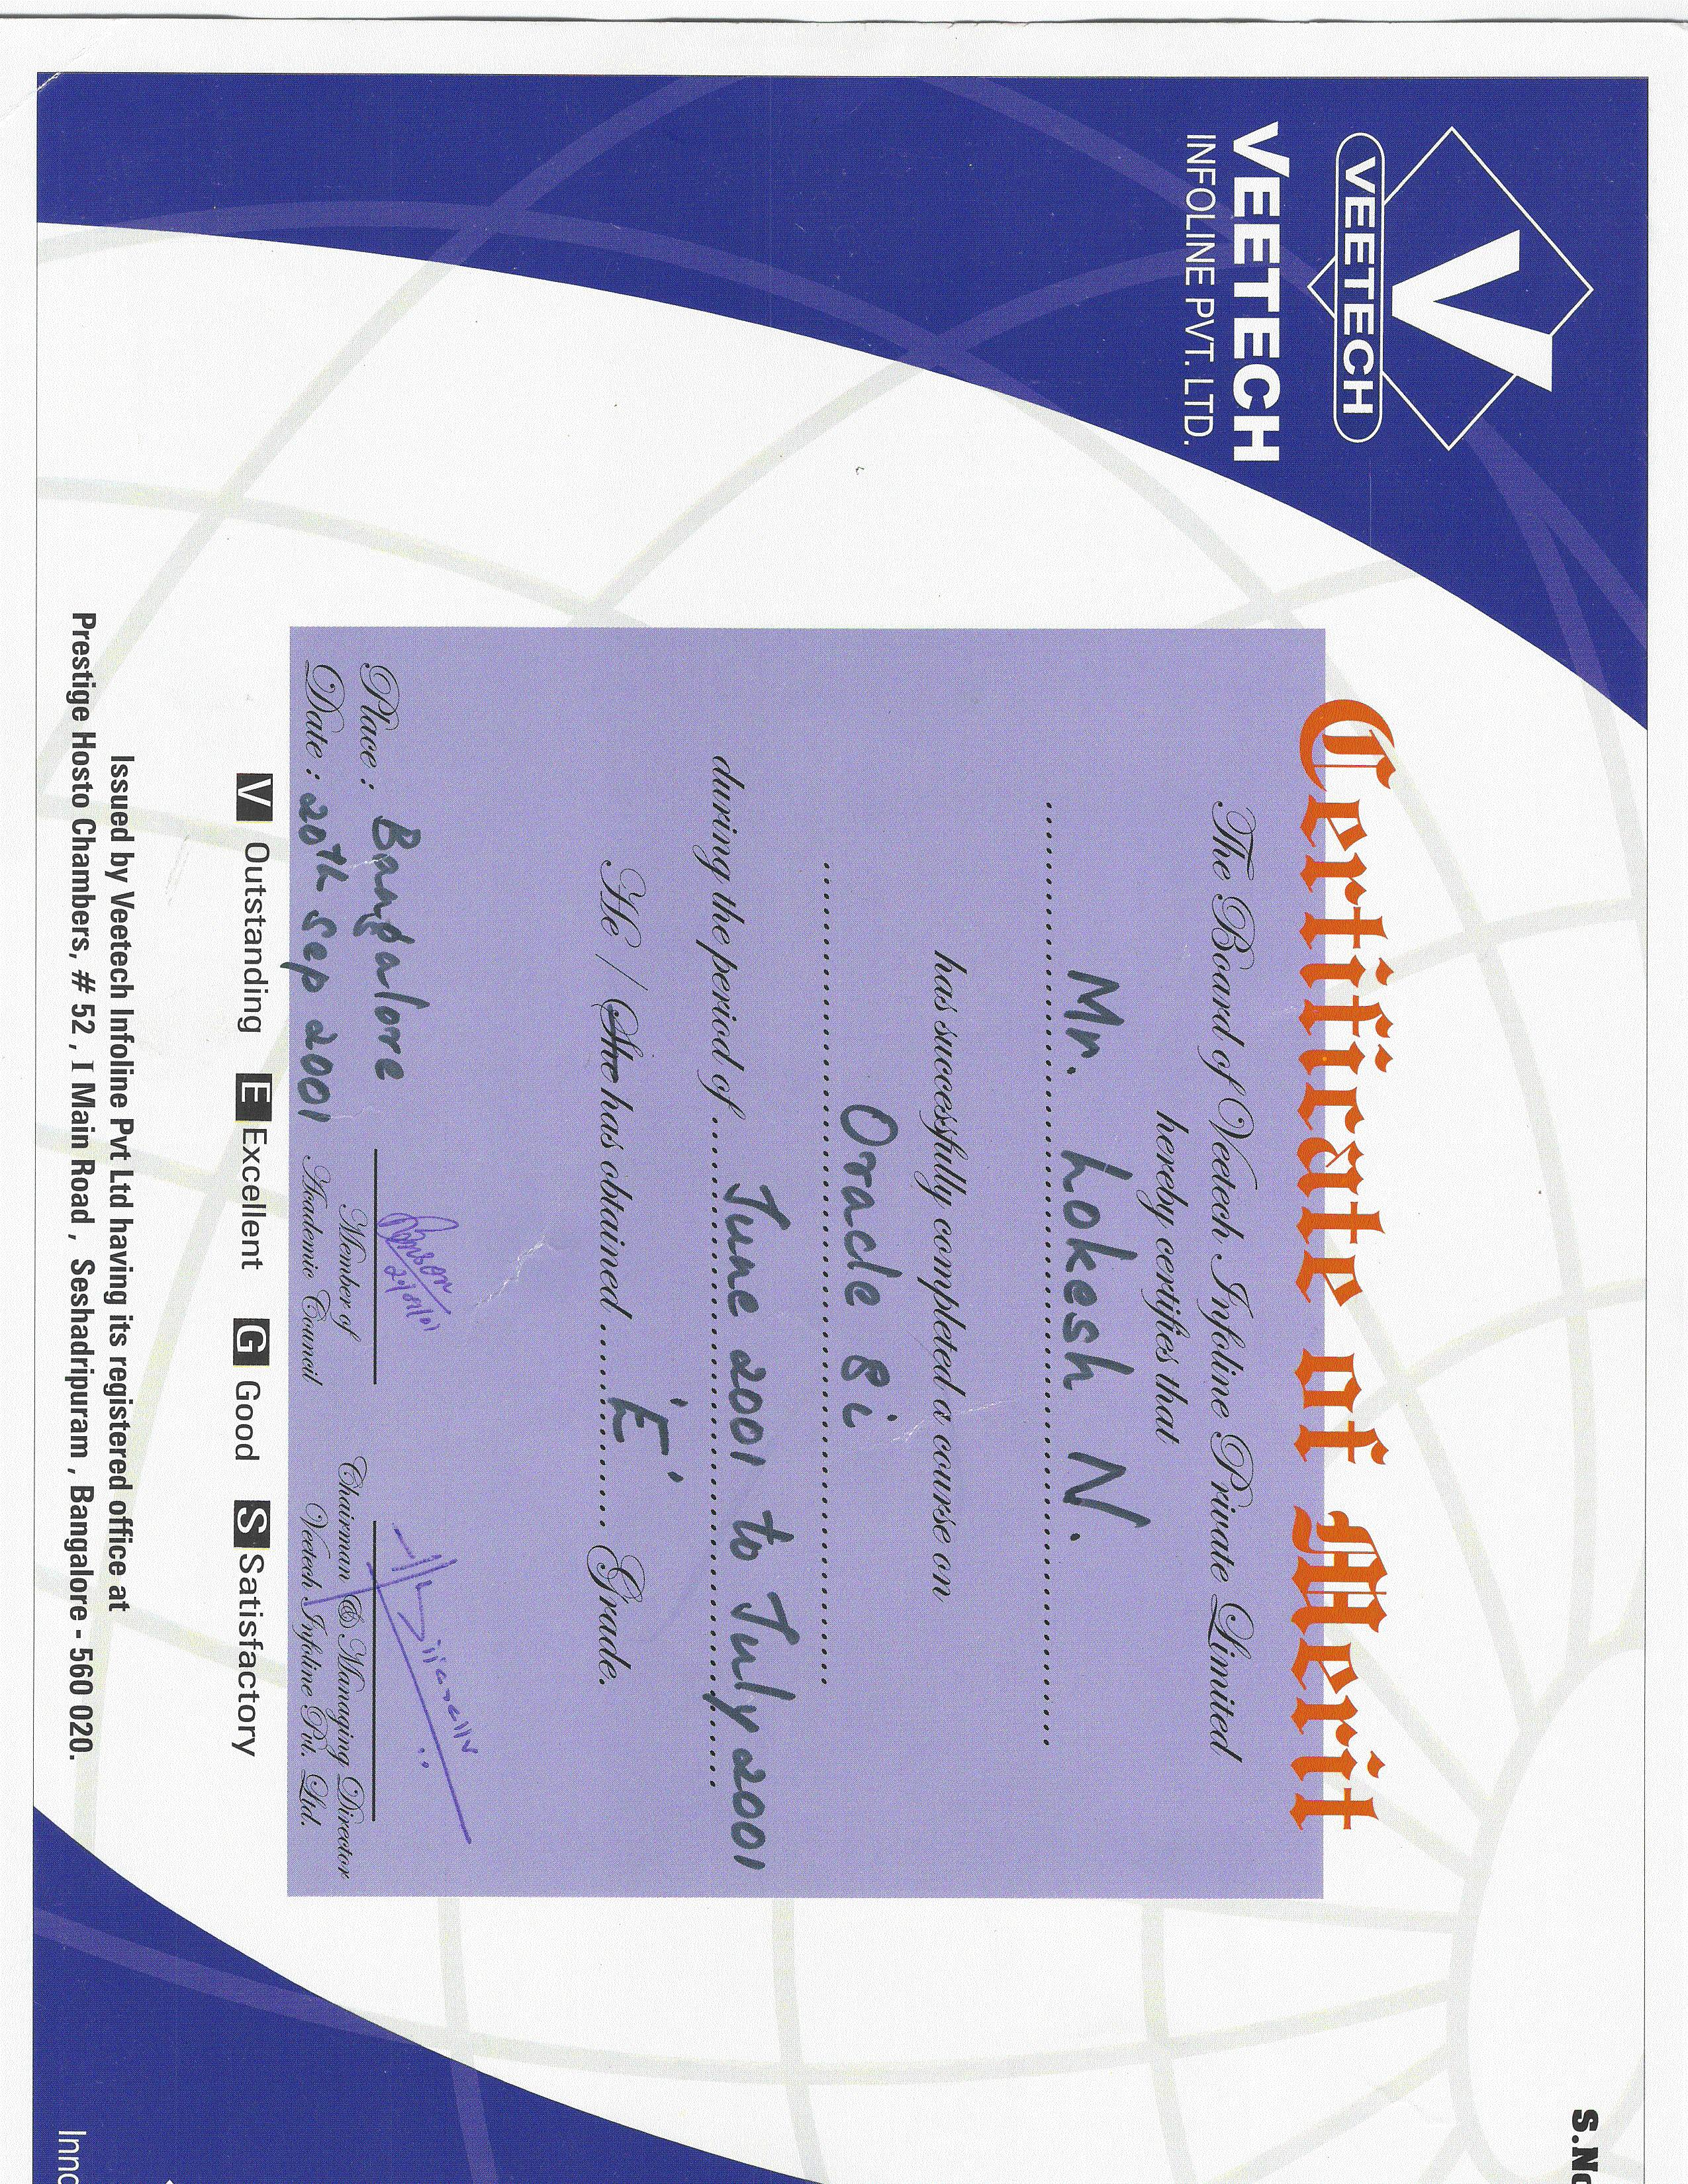 VEETECH
VEETECH
INFOLINE PVT. LTD.
S.No
Certificate of Merit
The Board of Veetech Infoline Private Limited
hereby certifies that
Mr. Lokesh N.
has successfully completed a course on
Oracle 8i
during the period of June 2001 to July 2001
He / She has obtained 'E' Grade.
Place : Bangalore
Date : 20th Sep 2001
Member of
Academic Council
Chairman & Managing Director
Veetech Infoline Pvt. Ltd.
V Outstanding E Excellent G Good S Satisfactory
Issued by Veetech Infoline Pvt Ltd having its registered office at
Prestige Hosto Chambers, # 52 , I Main Road , Seshadripuram , Bangalore - 560 020.